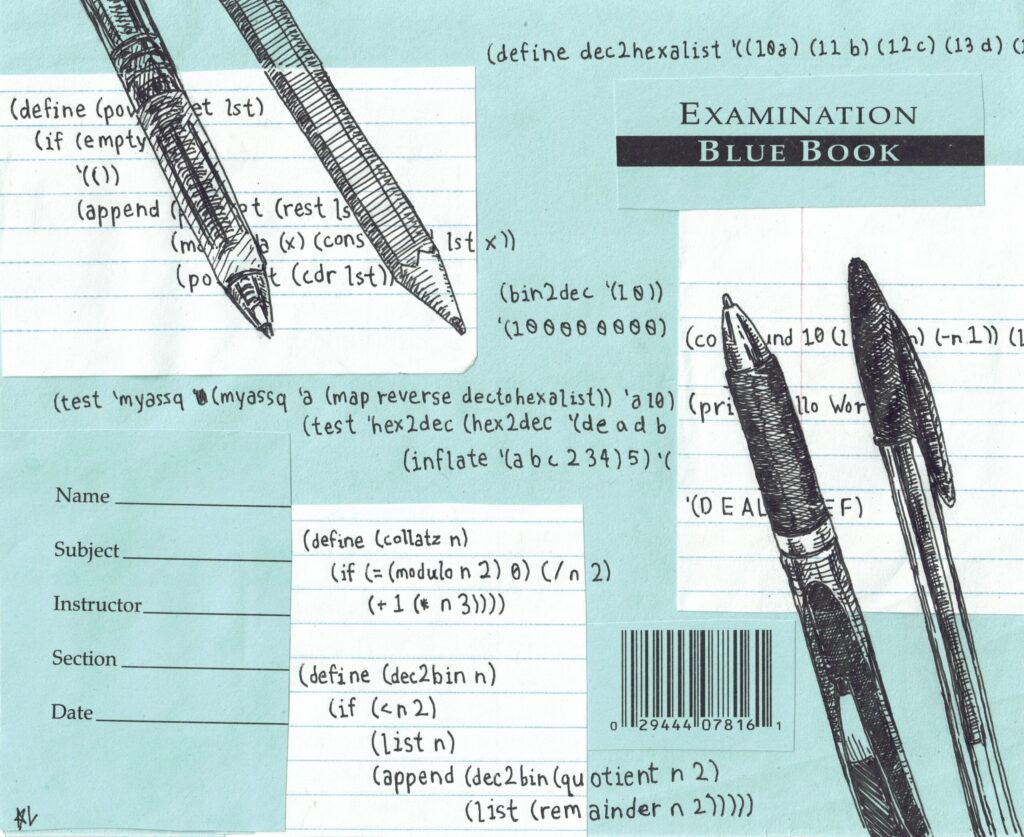 (define dec2hexalist '((10a) (11 b) (12c) (13 d) (
EXAMINATION
BLUE BOOK
(define (pow et lst)
(if (empty
'(())
(append (p t (rest ls
(ma a (x) (cons lst x))
(po t (cdr lst))
(bin2dec '(10))
'(10000 0000)
(co und 10 (l n) (-n1)) (
(test 'myassq (myassq 'a (map reverse dectohexalist)) 'a10)
(pri llo Wor
(test 'hex2dec (hex2dec '(de a d b
(inflate '(a b c 2 3 4) 5) '(
'(D E A F F)
Name
Subject
Instructor
Section
Date
(define (collatz n)
(if (= (modulo n 2) 0) (/ n 2)
(+ 1 (* n 3))))
(define (dec2bin n)
(if (< n 2)
(list n)
(append (dec2bin (quotient n 2)
(list (remainder n 2)))))
0 29444 07816 1